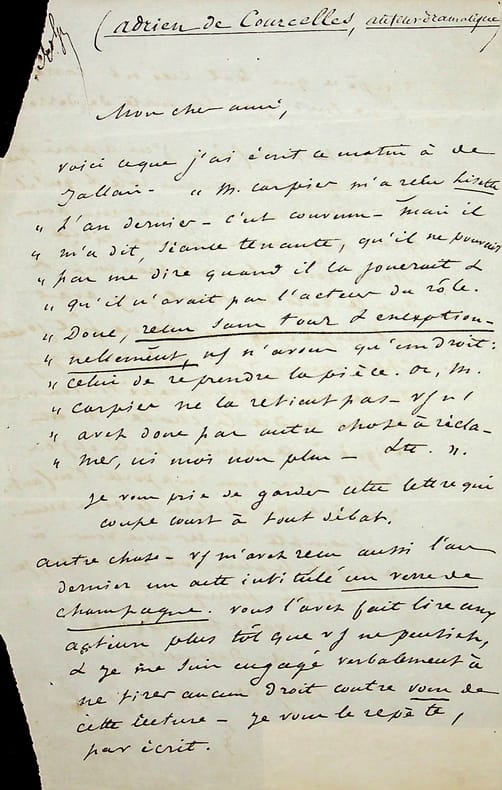 (Adrien de Courcelles, auteur dramatique)
Mon cher ami,
voici ce que j'ai écrit ce matin à de
Jallais - " M. Carpier m'a reçu Lisette
" L'an dernier - c'est convenu - mais il
" m'a dit, séance tenante, qu'il ne pouvait
" pas me dire quand il la jouerait &
" qu'il n'avait pas l'acteur du rôle.
" Donc, reçu sans tour & exception-
" nellement, vs n'avons qu'un droit :
" celui de reprendre la pièce. or, M.
" Carpier ne la retient pas - vs n'
" avez donc pas autre chose à récla-
" mer, ni moi non plus - &tc. ".
Je vous prie de garder cette lettre qui
coupe court à tout débat.
autre chose - vs m'avez reçu aussi l'an
dernier un acte intitulé un verre de
champagne. vous l'avez fait lire aux
plus tôt que vs ne pensiez,
& je me suis engagé verbalement à
ne tirer aucun droit contre vous de
cette lecture - je vous le répète,
par écrit.